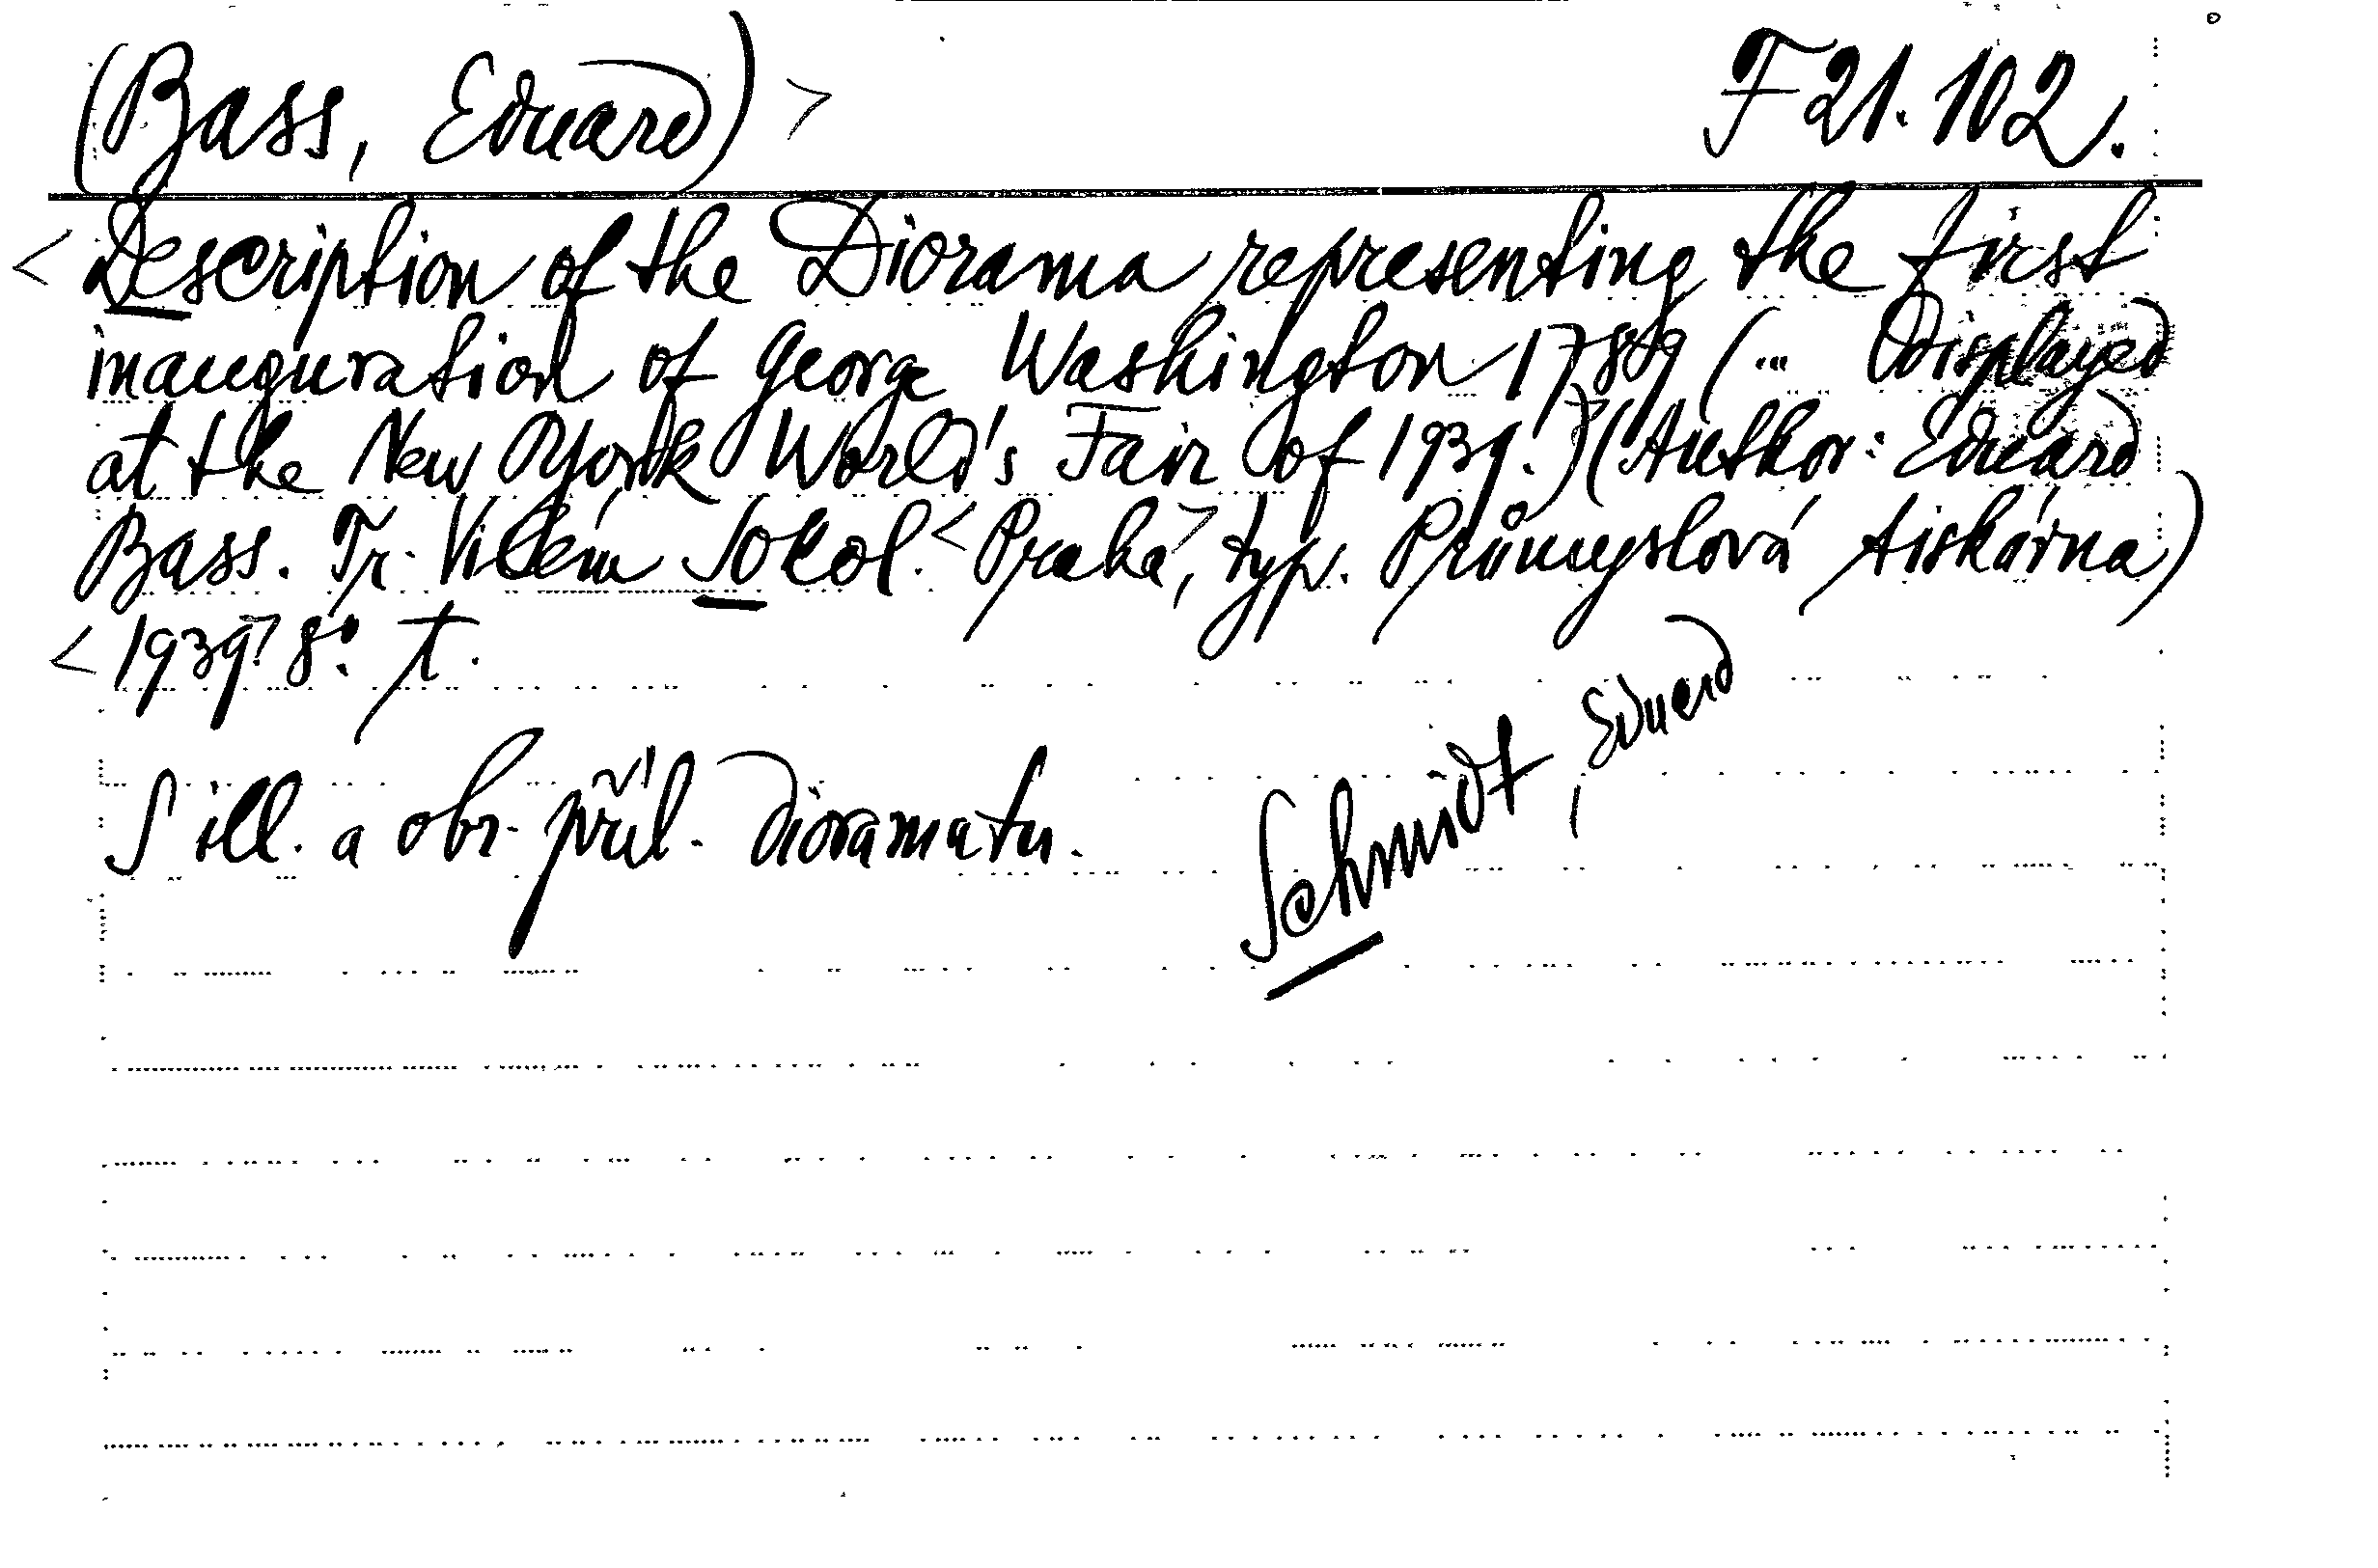 (Bass, Eduard) > F 21.102.
< Description of the Diorama representing the first
inauguration of George Washington 1789 (... Displayed
at the New York World's Fair of 1939.) (Author: Eduard
Bass. Tr. Vilém Sokol. < Praha >, typ. Průmyslová tiskárna)
< 1939 > 8°. t.
S ill. a obr. příl. dioramatu.
Schmidt, Eduard